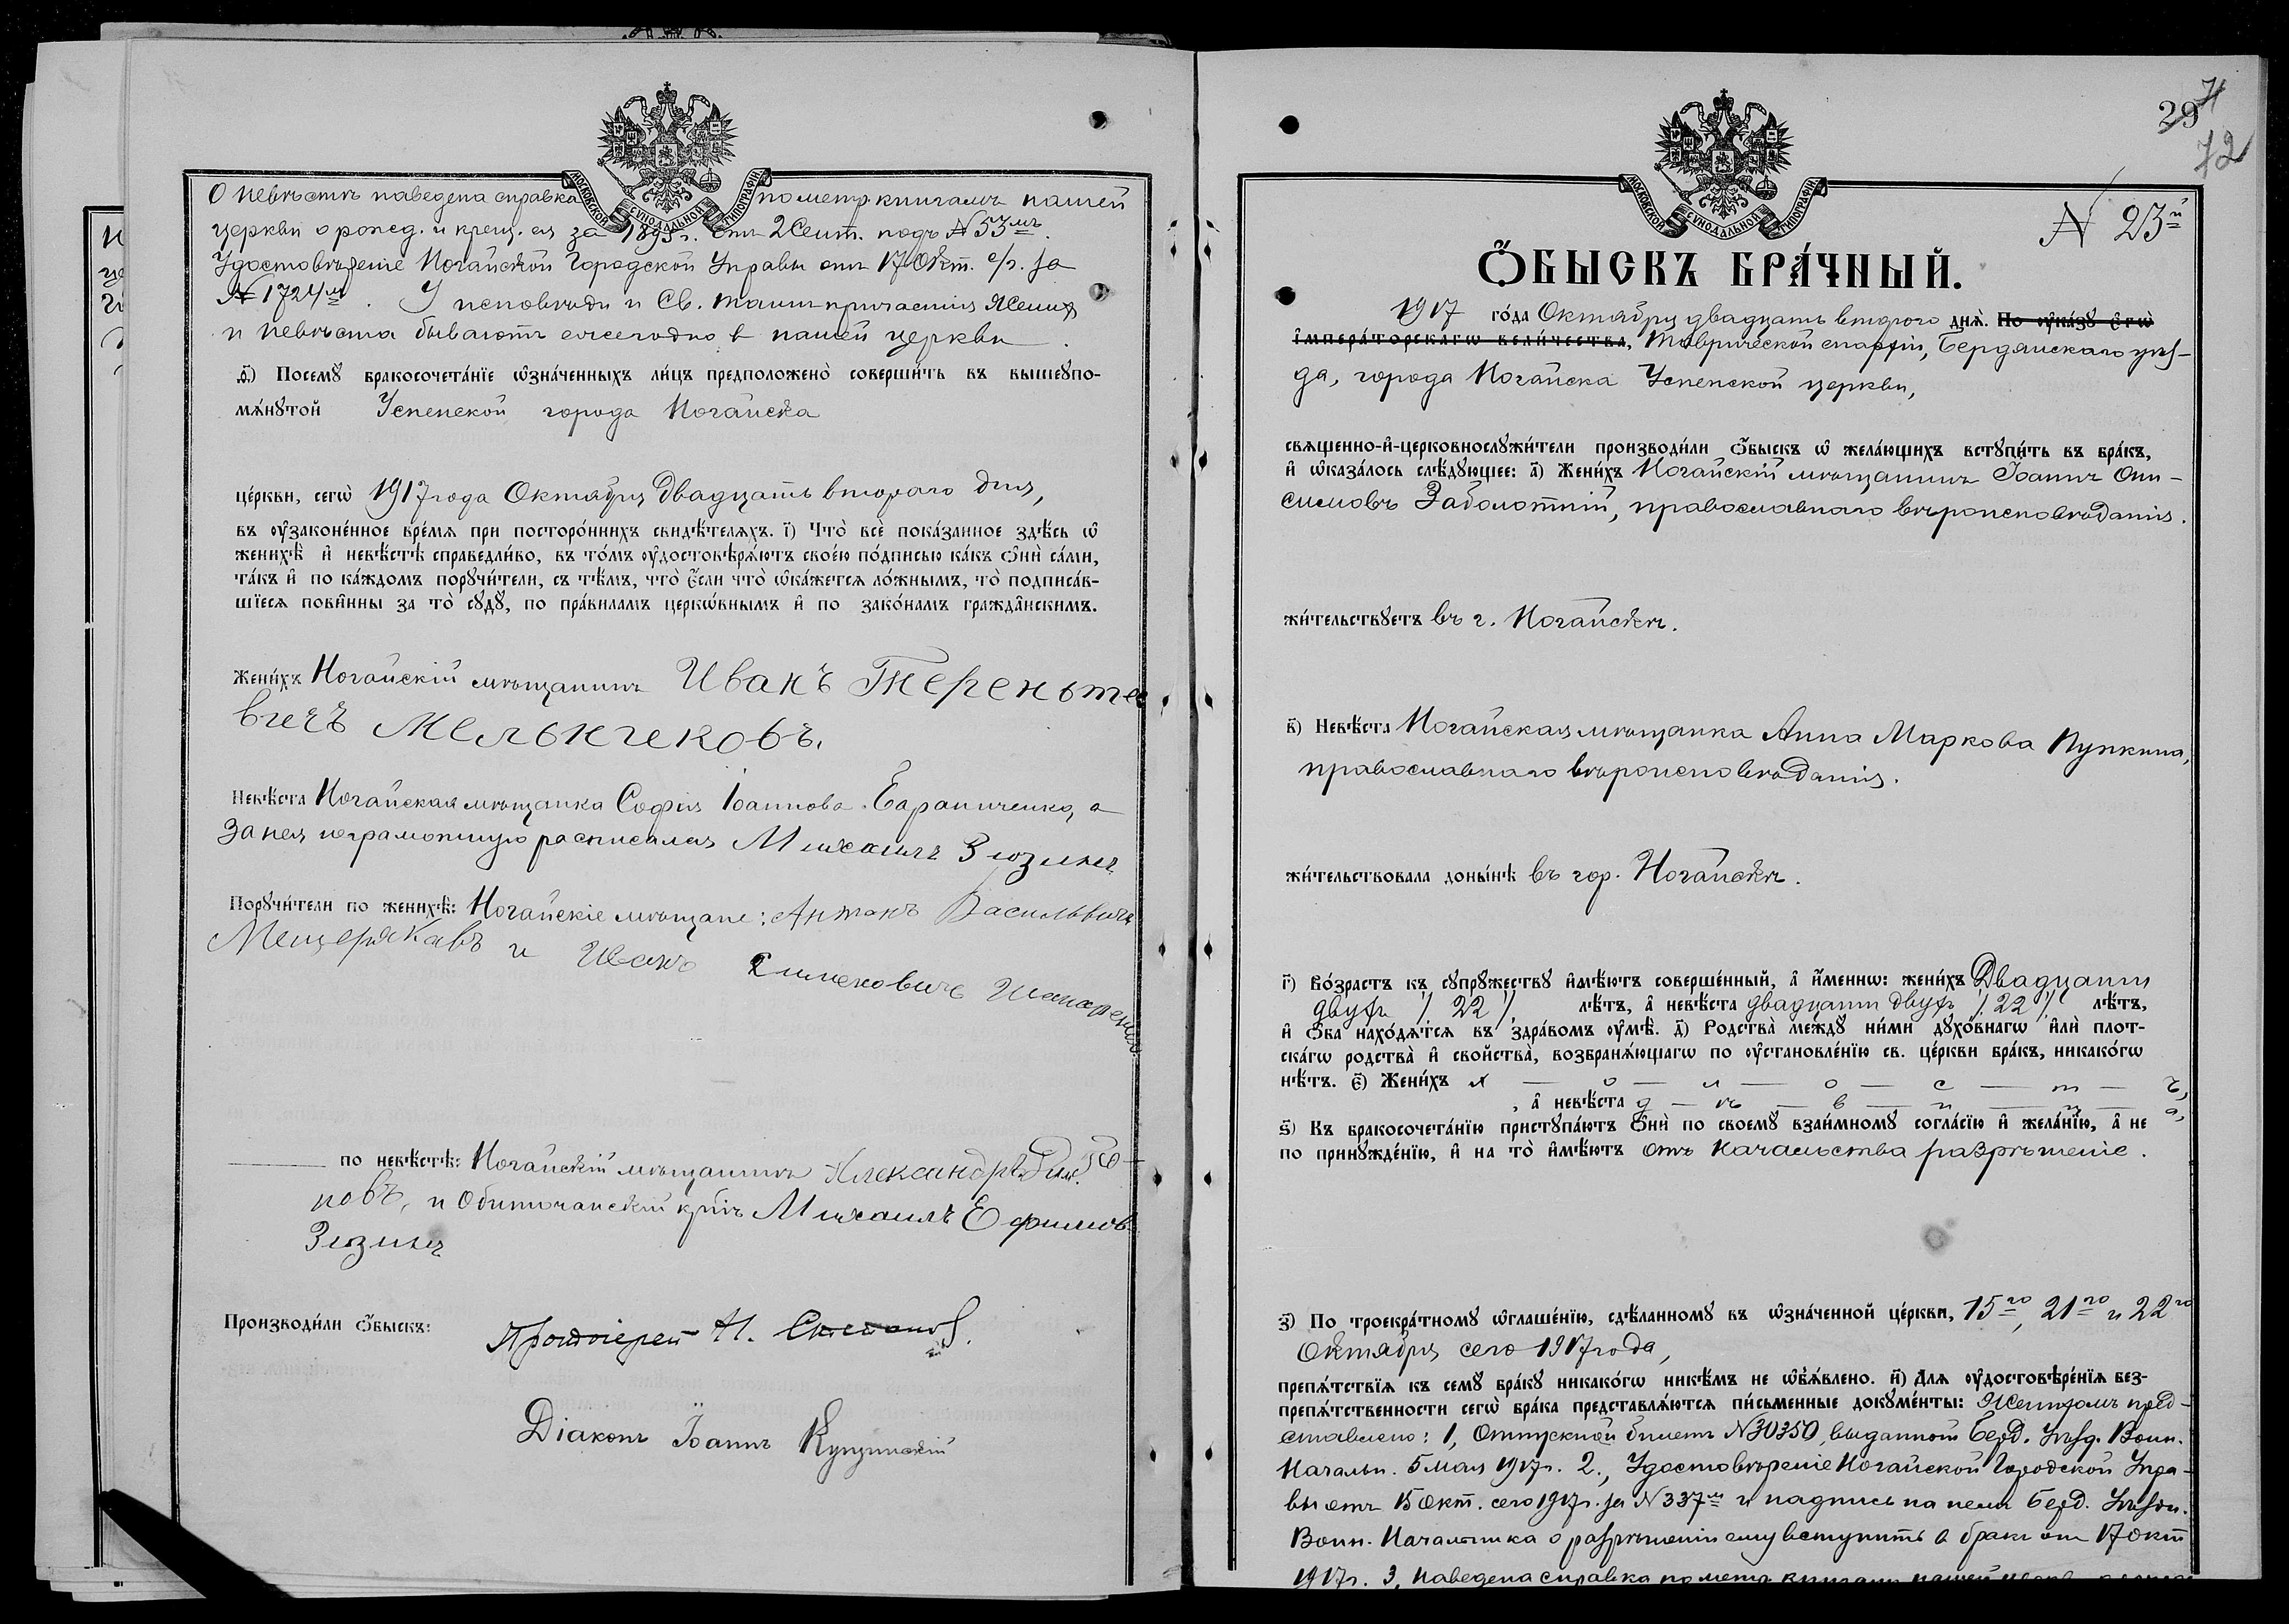 МОСКОВСКОЙ СѴНОДАЛЬНОЙ ТИПОГРАФІИ
О невѣстѣ наведена справка по метр. книгамъ нашей
церкви о рожд. и крещ. ея за 1895 г. отъ 2 Сент. подъ № 53мъ.
Удостовѣреніе Ногайской Городской Управы отъ 17 Окт. с/г. за
№ 1724м. У исповѣди и Св. таинъ причастія Женихъ
и невѣста бываютъ ежегодно в нашей церкви.
д҃) Посемꙋ бракосочета́нїе ѡ҆зна́ченныхъ ли́цъ предположено̀ соверши́ть въ вышеꙋпо-
мѧ́нꙋтой Успенской города Ногайска
це́ркви, сегѡ̀ 1917 года Октября Двадцать второго дня,
въ ᲂу҆законе́нное вре́мѧ при посторо́ннихъ свидѣ́телѧхъ. і҃) Что̀ всѐ пока́занное здѣ́сь ѡ҆
женихѣ̀ и҆ невѣ́стѣ справедли́во, въ то́мъ ᲂу҆достовѣрѧ́ютъ свое́ю по́дписью ка́къ ѻ҆нѝ са́ми,
та́къ и҆ по ка́ждомъ порꙋчи́тели, съ тѣ́мъ, что̀ є҆́сли что̀ ѡ҆ка́жетсѧ ло́жнымъ, то̀ подписа́в-
шїесѧ пови́нны за то̀ сꙋдꙋ̀, по пра́виламъ церкѡ́внымъ и҆ по зако́намъ гражда́нскимъ.
Жени́хъ Ногайскій мѣщанинъ Иванъ Терентье
вичъ Мельниковъ.
Невѣ́ста Ногайская мѣщанка Софія Іоаннова
за нея неграмотную расписался Михаилъ Зюзинъ
Порꙋчи́тели по женихѣ̀: Ногайскіе мѣщане: Антонъ Васильвичъ
Мещеряковъ и Иванъ
по невѣ́стѣ: Ногайскій мѣщанинъ Александръ
новъ, и Обиточанскій кр-нъ Михаилъ Ефимов.
Зюзинъ
Производи́ли ѻ҆́быскъ: Протоіерей Н. Степановъ.
Діаконъ Іоаннъ
29
71
72
МОСКОВСКОЙ СѴНОДАЛЬНОЙ ТИПОГРАФІИ
№ 23й
Ѻ҆БЫСКЪ БРА́ЧНЫЙ.
1917 го́да Октября двадцать второго днѧ̀. По ᲂу҆ка́зꙋ є҆гѡ̀
і҆мпера́торскагѡ вели́чества, Таврической епархіи, Бердянскаго уѣз-
да, города Ногайска Успенской церкви,
свѧщенно-и҆-церковнослꙋжи́тели производи́ли ѻ҆́быскъ ѡ҆ жела́ющихъ встꙋпи́ть въ бра́къ,
и҆ ѡ҆каза́лось слѣ́дꙋющее: а҃) Жени́хъ Ногайскій мѣщанинъ Іоаннъ Они-
симовъ Заболотній, православнаго вѣроисповѣданія.
жи́тельствꙋетъ въ г. Ногайскѣ.
в҃) Невѣ́ста Ногайская мѣщанка Анна Маркова Пункина,
православнаго вѣроисповѣданія.
жи́тельствовала доны́нѣ въ гор. Ногайскѣ.
г҃) Во́зрастъ къ сꙋпрꙋ́жествꙋ и҆мѣ́ютъ соверше́нный, а҆ и҆́меннѡ: жени́хъ Двадцати
двухъ /22/ лѣ́тъ, а҆ невѣ́ста двадцати двухъ /22/ лѣ́тъ,
и҆ ѻ҆́ба нахо́дѧтсѧ въ здра́вомъ ᲂу҆мѣ̀. д҃) Родства̀ междꙋ̀ ни́ми дꙋхо́внагѡ и҆лѝ плот-
ска́гѡ родства̀ и҆ сво́йства̀, возбранѧ́ющагѡ по ᲂу҆становле́нїю св. це́ркви бра́къ, никако́гѡ
нѣ́тъ. є҃) Жени́хъ х — о — л — о — с — т — ъ,
, а҆ невѣ́ста д — ѣ — в — и — ц — а,
ѕ҃) Къ бракосочета́нїю пристꙋпа́ютъ ѻ҆нѝ по своемꙋ̀ взаи́мномꙋ согла́сїю и҆ жела́нїю, а҆ не
по принꙋжде́нїю, и҆ на то̀ и҆мѣ́ютъ отъ Начальства разрѣшеніе.
з҃) По троекра́тномꙋ ѡ҆глаше́нїю, сдѣ́ланномꙋ въ ѡ҆зна́ченной це́ркви, 15го, 21го и 22го
Октября сего 1917 года,
препѧ́тствїѧ къ семꙋ̀ бра́кꙋ никако́гѡ никѣ́мъ не ѡ҆б̾ѧ́влено. и҃) Длѧ ᲂу҆достовѣре́нїѧ без-
препѧ́тственности сегѡ̀ бра́ка представлѧ́ютсѧ пи́сьменные докꙋме́нты: Женихомъ пред-
ставлено: 1, Отпускной билетъ №30350, выданный Берд. Уѣзд. Воин.
Начальн. 5 Мая 1917 г. 2., Удостовѣреніе Ногайской Городской Упра-
вы отъ 15 Окт. сего 1917 г. за №337м и надпись на немъ Берд. Уѣздн.
Воин. Начальника о разрѣшеніи ему вступить в бракъ отъ 17 Окт
1917 г. 3, Наведена справка по метр. книгамъ нашей церкв.